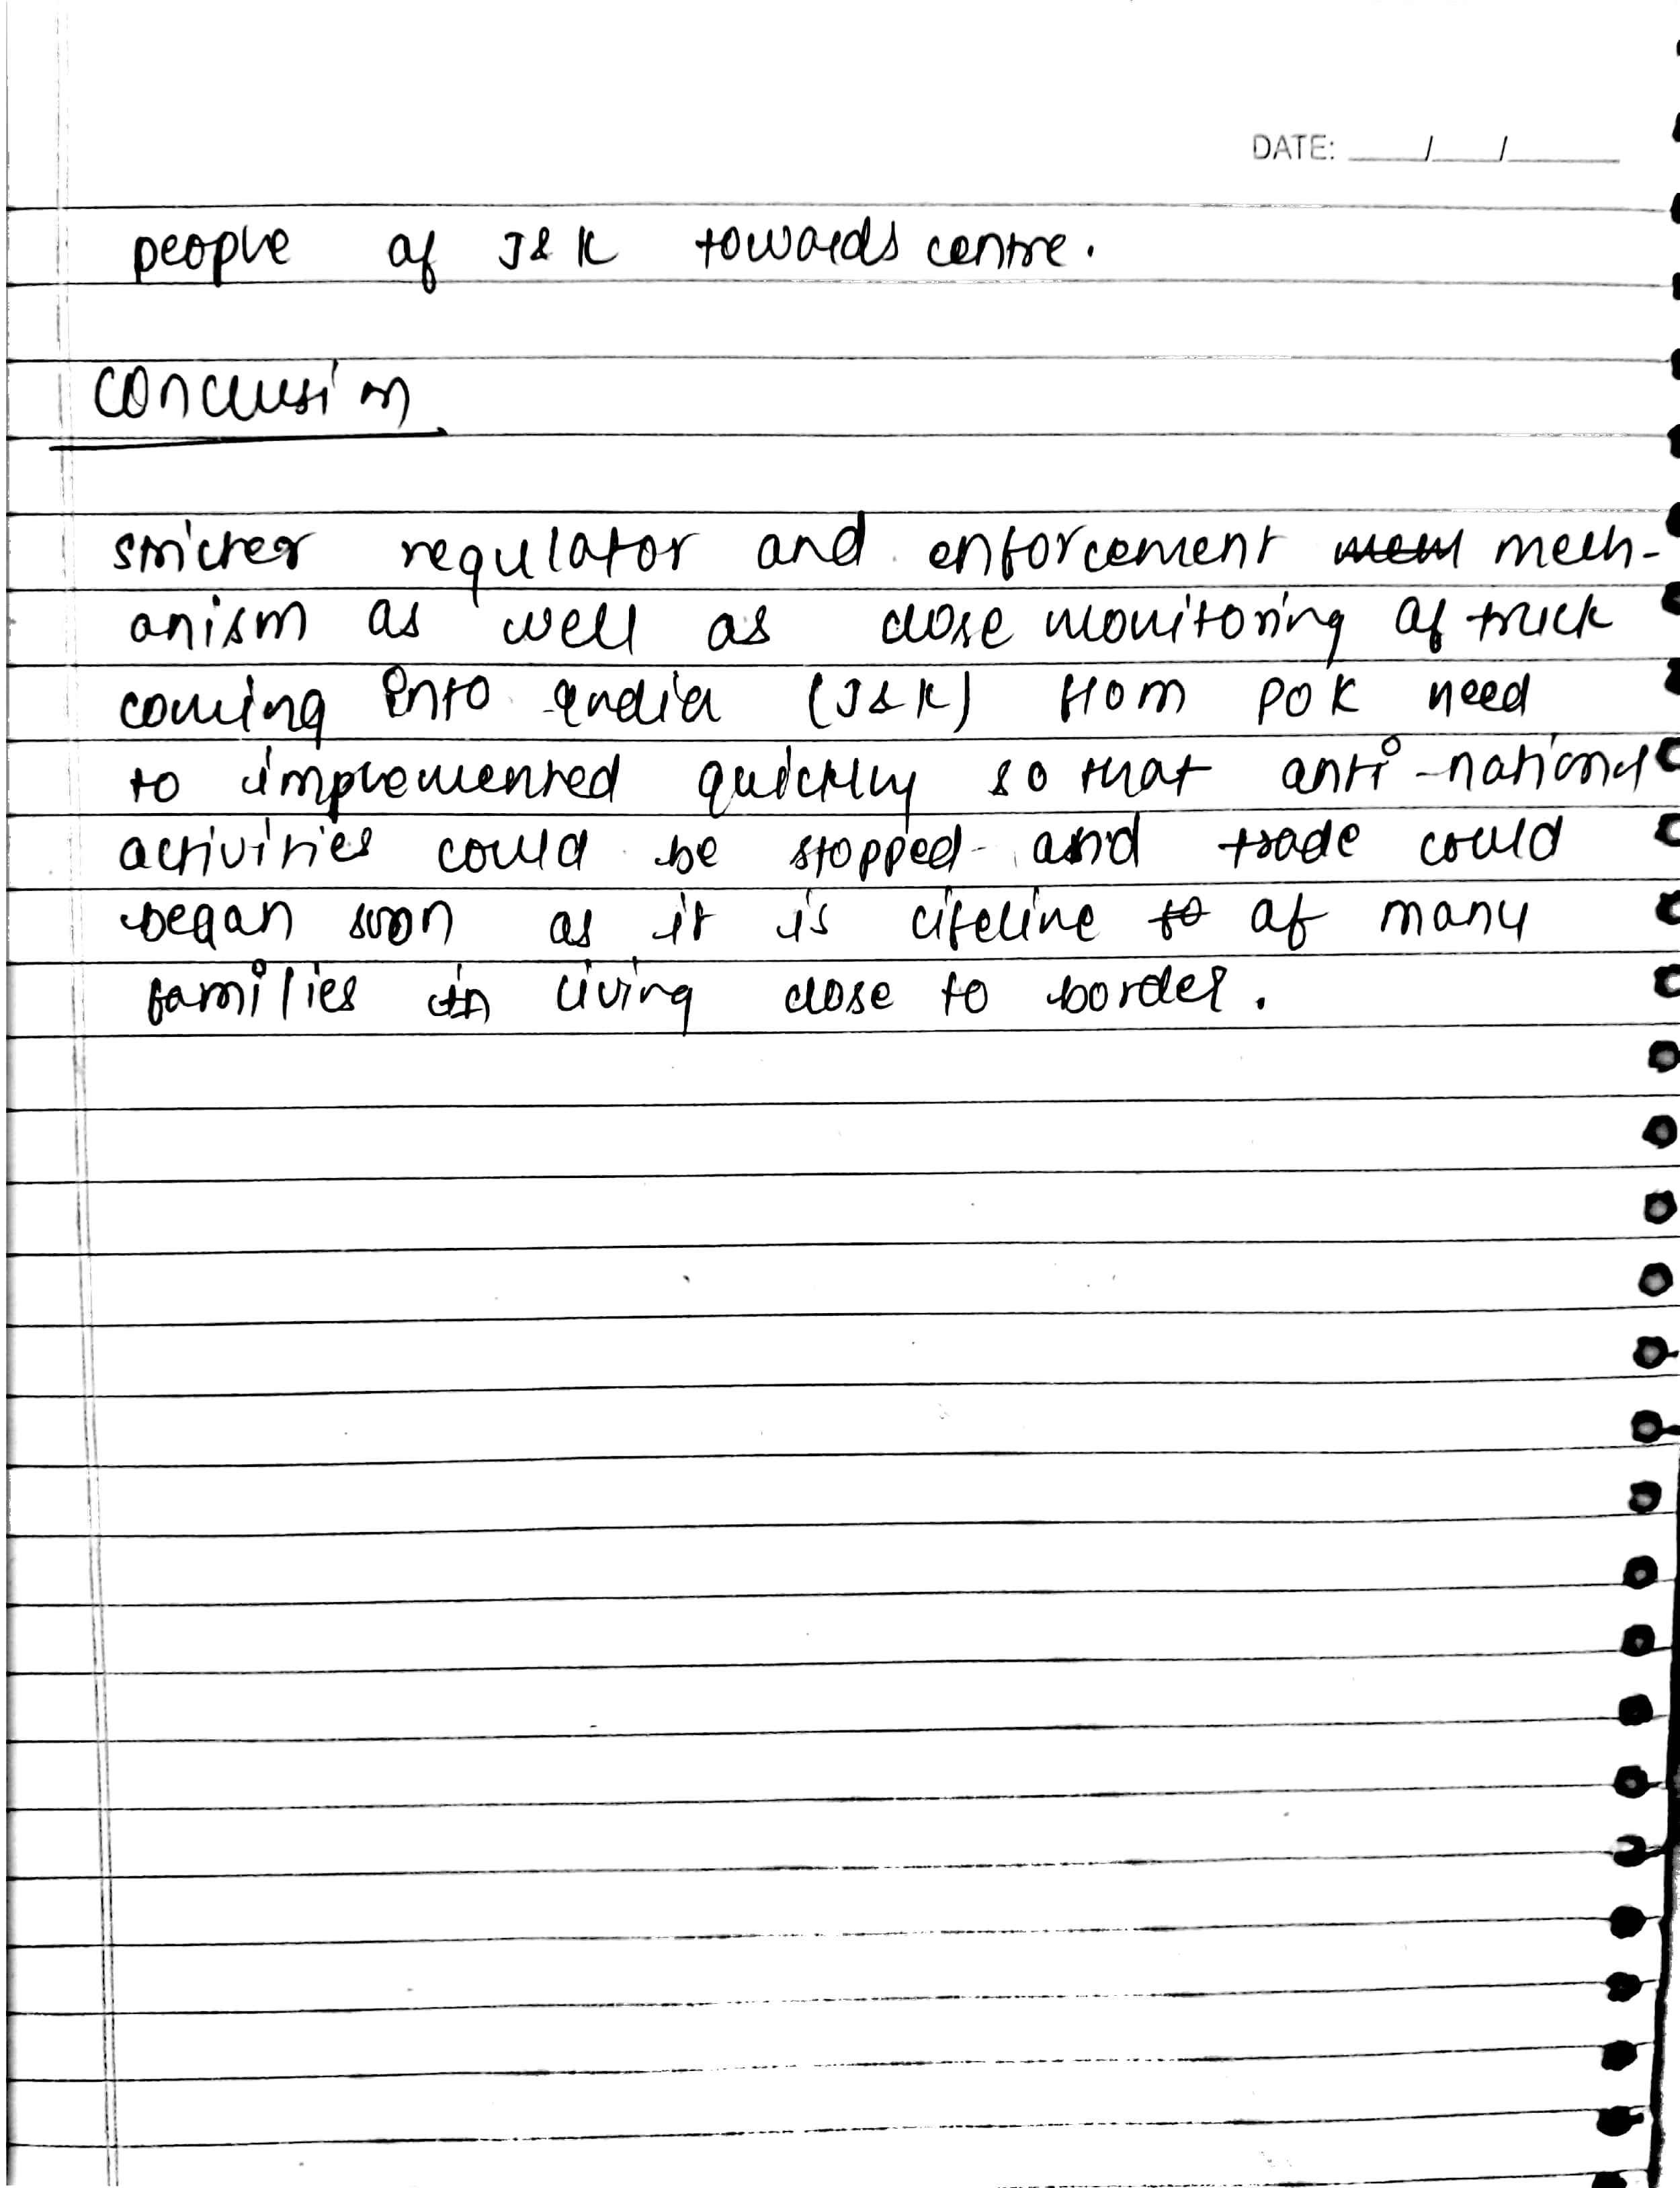 DATE: ___/___/_____
people of J&K towards centre.
Conclusion
stricter regulator and enforcement mech-
anism as well as close monitoring of truck
coming into India (J&K) from POK need
to implemented quickly so that anti-national
activities could be stopped and trade could
began soon as it is lifeline of many
families living close to border.